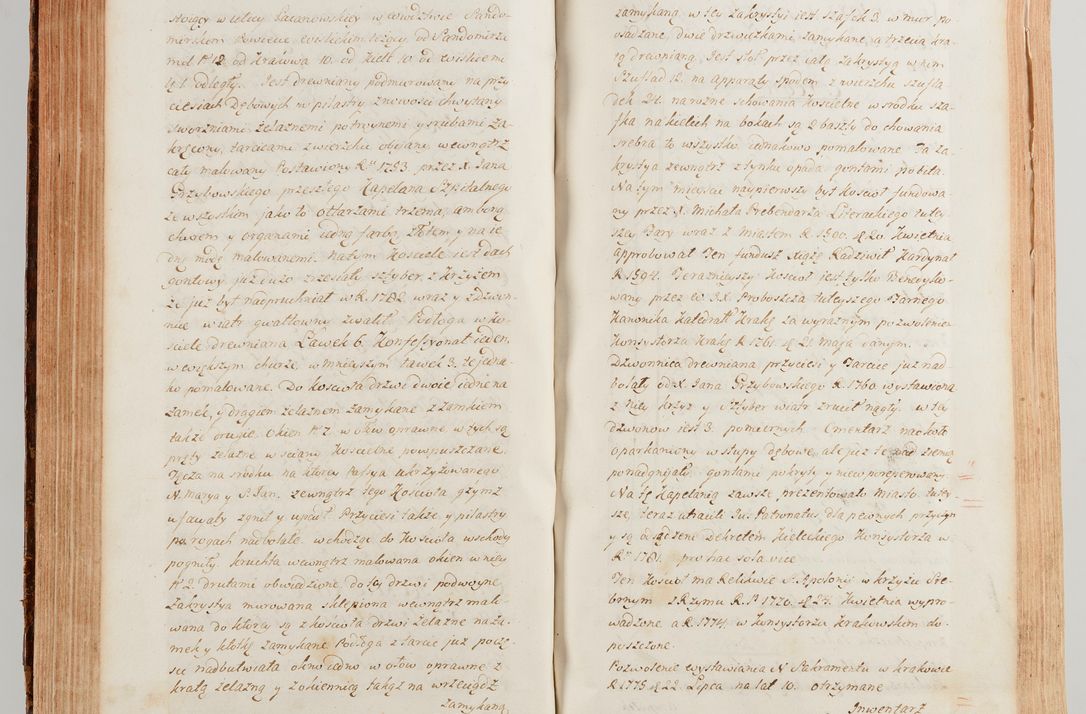 stoiący w ulicy Pacanowskiey w Woiewodztwie Sando-
merskim Powiecie Wislickim leżący, od Sandomirza
mil Nº 12. od Krakowa 10. od Kielc 10. od Wislicmi
odległy. Jest drewniany podmurowany na przy
ciesiach Dębowych w pilastry z nowości chwytany
sworzniami żelaznemi potroynemi y srubami za-
kręcony, tarcicami z wierzchu obiiany wewnątrz
cały malowany Postawiony Rº 1753. przez X. Jana
Grzybowskiego przeszłego Kapelana Szpitalnego
ze wszystkim jako to ołtarzami trzema, amboną
chorem y organami iedną farbą złotem y na ie
dnę modę malowanemi. na tym Kosciele iest dach
gontowy już dużo zrzesiały szlyber z Krzyżem
że już był nadpruchniał w R. 1782. wraz y z dzwon-
nicę wiatr gwałtowny zwalił. Podłoga w Ko-
sciele drewniana Ławek 6. Konfessyonał ieden,
w większym chorze, w mnieyszym ławek 3. że jedna-
ko pomalowane. Do Koscioła drzwi dwoie iedne na
zamek, y drągiem żelaznem zamykane z zamkiem
także drugie. Okien Nº 7. w ołow oprawne w tych są
pręty żelazne w sciany Koscielne powpuszczane.
Tęcza na srodku na ktorey Passya ukrzyżowanego
N. Marya y S. Jan. zewnątrz tego Koscioła gzymz
ufawały zgnił y upadł Przyciesi także, y pilastry
po rogach nadbolałe. wchodząc do Koscioła wschody
pogniły. kruchta wewnątrz malowana okien w niey
Nº 2. drutami obwiedzione, do tey drzwi podwoyne
Zakrystya murowana sklepiona wewnątrz malo-
wana do ktorey są z koscioła drzwi żelazne na za-
mek y kłotkę zamykane Podłoga z tarcic już poczę-
sci nadbutwiała okno iedno w ołow oprawne z
kratą żelazną y z okiennicą takąż na wrzeciądz
zamykaną.
zamykaną. w tey zakrystyi iest szafek 3. w mur po
osadzane, dwie drzwiczkami zamykane, a trzecia kra-
tą drewnianą. Jest stoł przez całą zakrystyą w nim
Szuflad 12. na apparaty spodem z wierzchu szufla
dek 24. na rozne schowania Koscielne w srodku sza-
fka na kielich na bokach są 2 baszty do chowania
srebra to wszystko iednakowo pomalowane Ta za-
krystya zewnątrz z tynku opada gontami pobita.
Na tym mieyscu naypierwszy był Kosciol fundowa
ny przez X. Michała Prebendarza Literackiego tutey-
szey Fary wraz z Miastem R. 1500. d. 20. Kwietnia
approbował Ten fundusz Xiążę Radziwił Kardynał
R. 1594. Teraznieyszy Kosciol jest tylko Benedyko-
wany przez JX. Proboszcza tuteyszego Farnego
Kanonika Katedral: Krakg za wyraznym pozwoleniem
Konsystorza Krakg R. 1761. d. 21. Maja danym.
Dzwonnica drewniana przyciesi y Tarcice już nad
bolały od X. Jana Grzybowskiego R. 1760. wystawioną
z Niey krzyż y Szlyber wiatr zrucił nagły. w tey
Dzwonow iest 3. pomiernych. Cmentarz naokoło
oparkaniony w słupy dębowe, ale już te pod ziemią
ponadgniłały gontami pokryty y niew poreperowany
Na tę Kapelanią zawsze prezentowało miasto tutey-
sze, teraz utraciło Jus Patronatus dla pewnych przyczyn
y są osądzene Dekretem Kieleckiego Konsystorza w
Rº 1781. pro hac sola vice
Ten Kosciol ma Relikwie S. Apolonii w krzyżu Sre-
brnym z Rzymu R. P. 1770. d. 24. Kwietnia wypro-
wadzone a R. 1774. w Konsystorzu Krakowskim do-
puszczone.
Pozwolenie wystawiania N. Sakramentu w krakowie
R. 1775. d. 22. Lipca na lat 10. otrzymane
Inwentarz